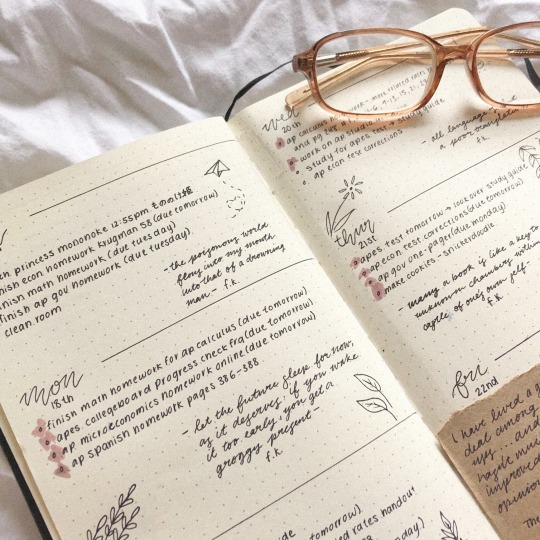 princess mononoke 12:55pm もののけ姫
econ homework krugman 58 (due tomorrow)
math homework (due tuesday)
finish ap gov homework (due tuesday)
clean room
-the poisonous world
flows into my mouth
into that of a drowning
man- f.k.
mon
18th
finish math homework for ap calculus (due tomorrow)
apes collegeboard progress check frq (due tomorrow)
ap microeconomics homework online (due tomorrow)
ap spanish homework pages 386-388
- let the future sleep for now,
as it deserves. if you wake
it too early, you get a
groggy present-
f.k.
tomorrow)
rates handout
(due tomorrow)
wed
20th
ap calculus
and pg
work on ap studio
study for apes test → study guide
ap econ test corrections
- all language is
a poor translation
f.k.
thur
21st
apes test tomorrow → look over study guide
ap econ test corrections (due tomorrow)
ap gov one-pager (due monday)
make cookies - snickerdoodle
- many a book is like a key to
unknown chambers within
castle of one's own self-
f.k.
fri
22nd
I have lived a
deal among
ups... and
hasn't much
improved
opinion